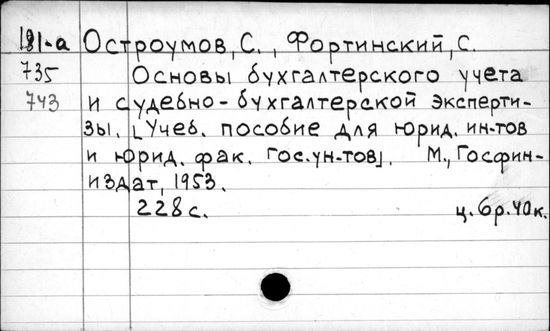 181-а Остроумов, С., Фортинский, С.
735 Основы бухгалтерского учета
743 и судебно-бухгалтерской эксперти-
зы. [Учеб. пособие для юрид. ин-тов
и юрид. фак. Гос.ун-тов]. М., Госфин-
издат, 1953.
228с. ц. 6р.40к.